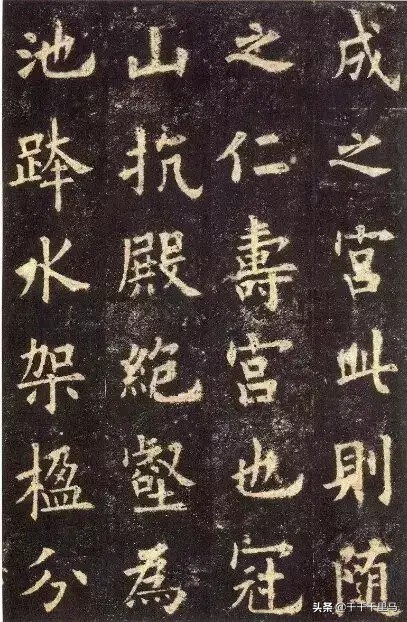 成之宫此則随
之仁壽宫也冠
山抗殿絶壑為
池跨水架楹分
头条 @千千千里马